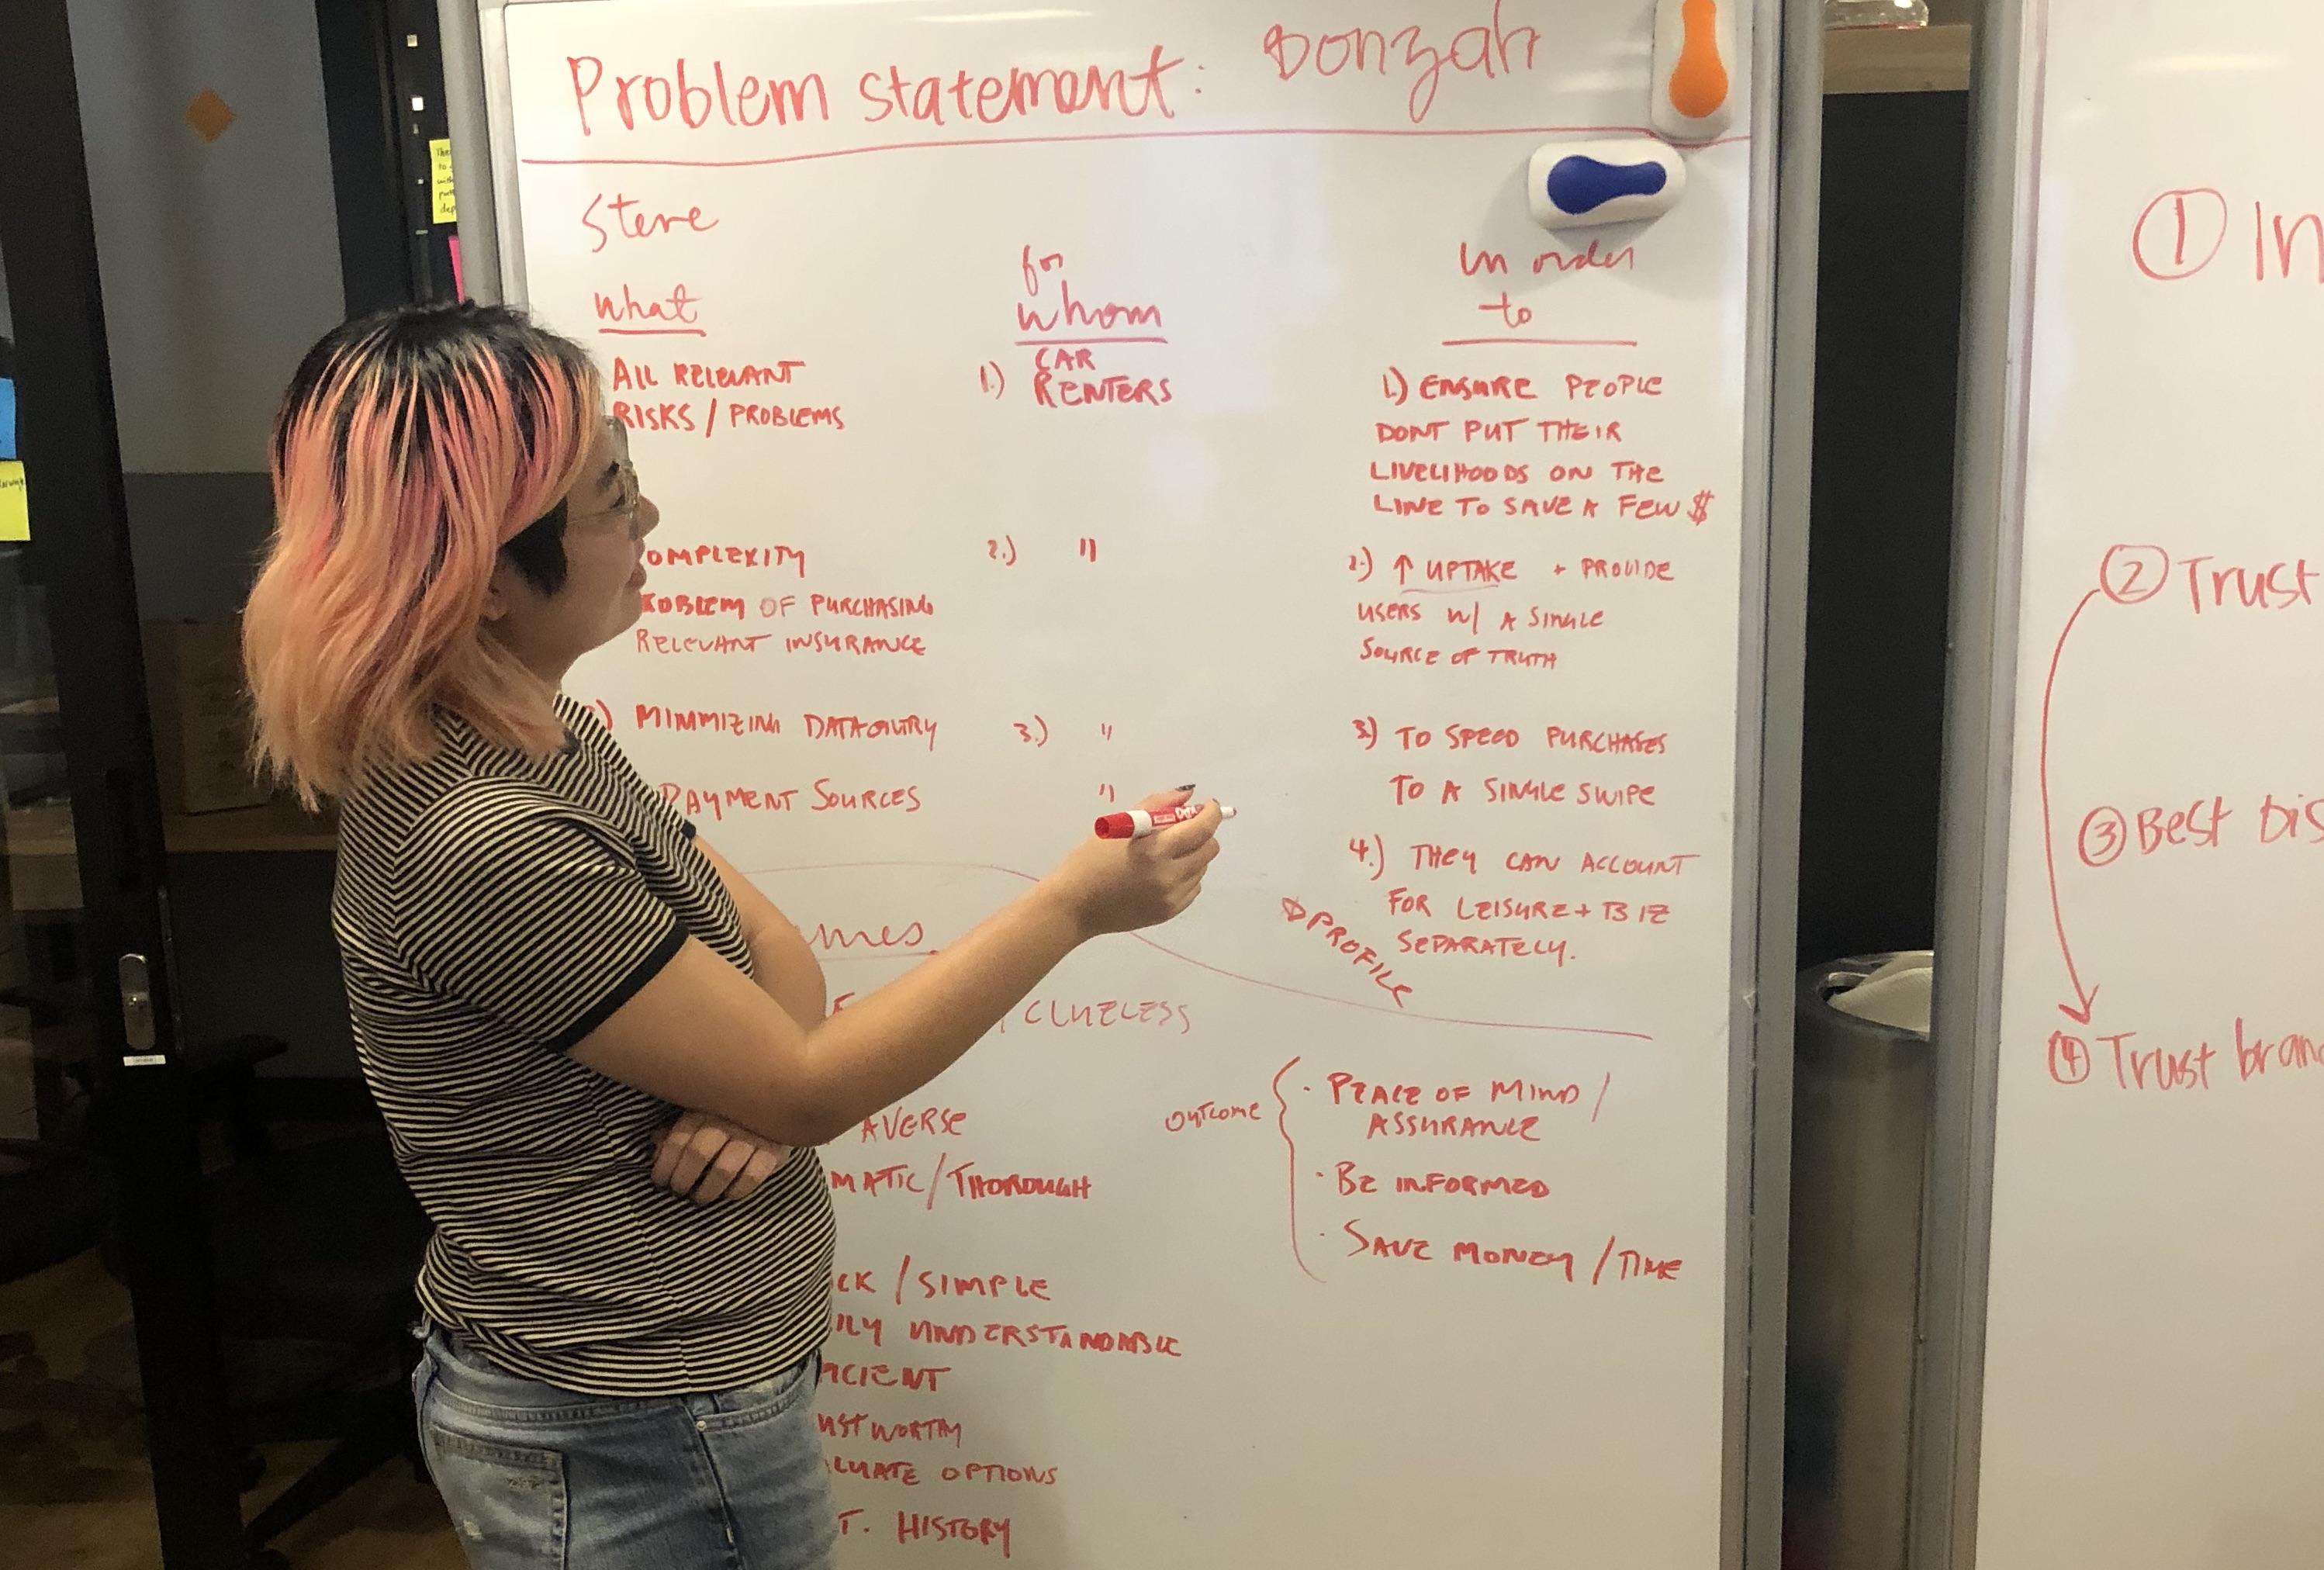 Problem statement: Bonzah
Steve
what
ALL RELEVANT
RISKS / PROBLEMS
OMPLEXITY
ROBLEM OF PURCHASING
RELEVANT INSURANCE
) MINIMIZING DATA ENTRY
PAYMENT SOURCES
for
whom
1.) CAR
RENTERS
2.) "
3.) "
"
In order
to
1.) ENSURE PEOPLE
DONT PUT THEIR
LIVELIHOODS ON THE
LINE TO SAVE A FEW $
2.) ↑ UPTAKE + PROVIDE
USERS W/ A SINGLE
SOURCE OF TRUTH
3.) TO SPEED PURCHASES
TO A SINGLE SWIPE
4.) THEY CAN ACCOUNT
FOR LEISURE + BIZ
SEPARATELY.
PROFILE
mes
/ CLUELESS
AVERSE
MATIC / THOROUGH
CK / SIMPLE
ILY UNDERSTANDABLE
ICIENT
USTWORTHY
LUATE OPTIONS
T. HISTORY
OUTCOME
· PEACE OF MIND /
ASSURANCE
· BE INFORMED
· SAVE MONEY / TIME
① In
② Trust
③ Best Dis
④ Trust bran